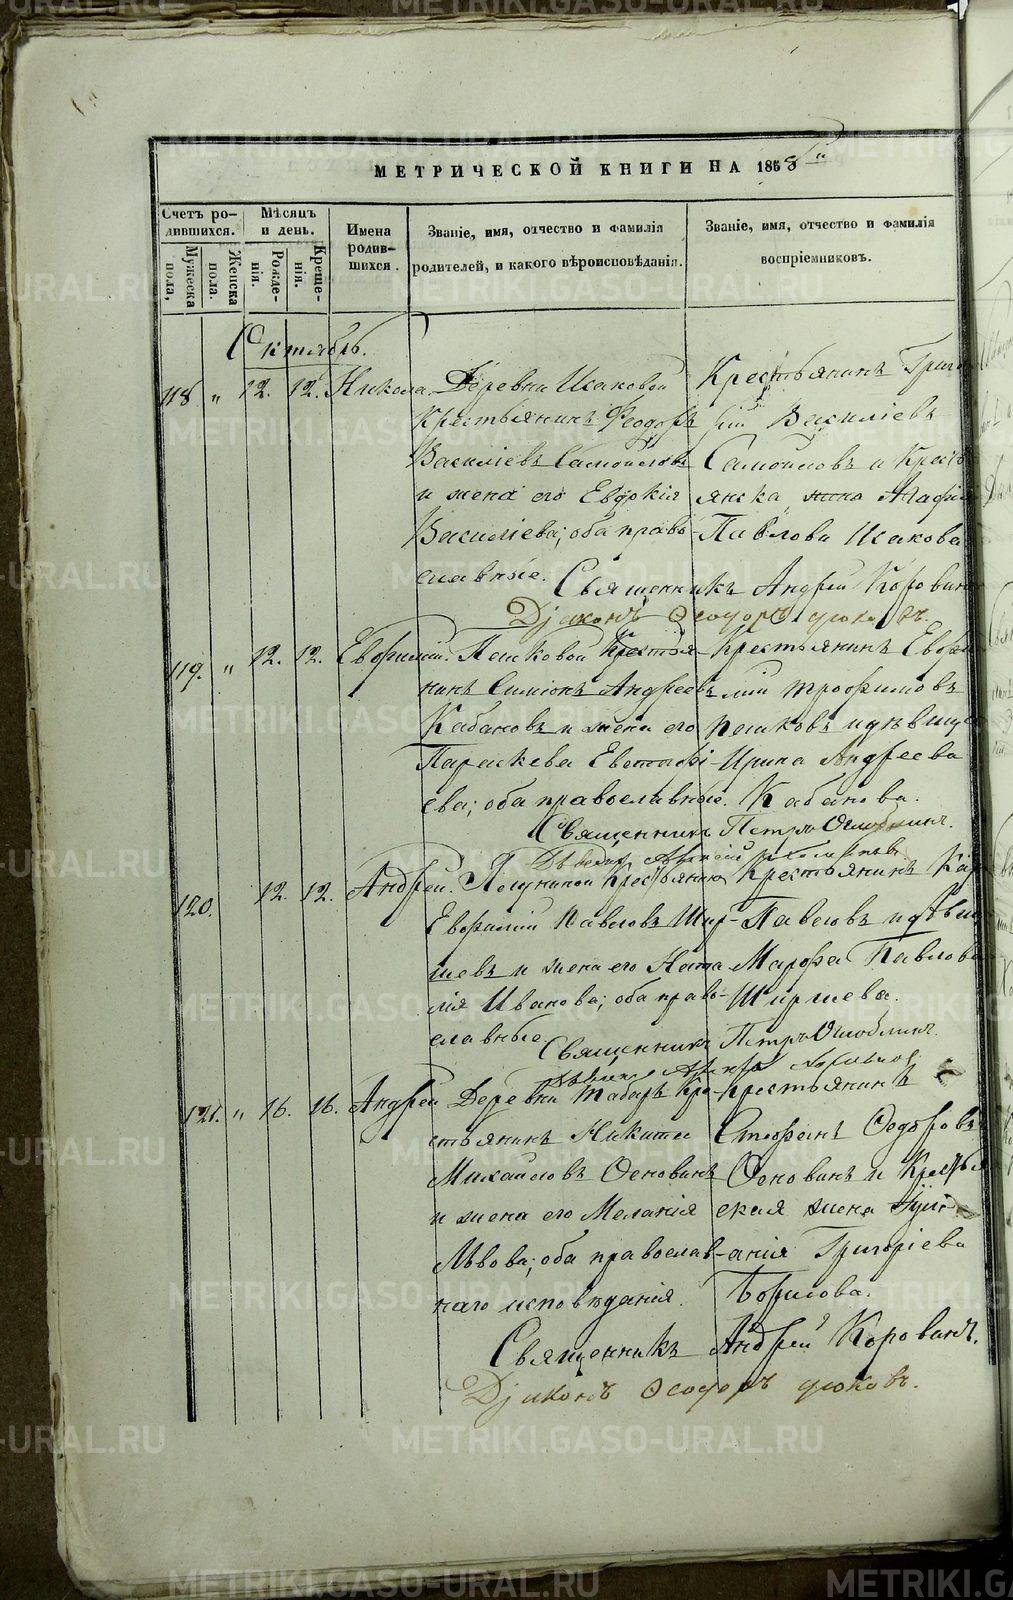 МЕТРИЧЕСКОЙ КНИГИ НА 1858
Счетъ ро-
дившихся.
Мужеска
пола.
Женска
пола.
Мѣсяцъ
и день.
Рожде-
нія.
Креще-
нія.
Имена
родив-
шихся.
Званіе, имя, отчество и фамилія
родителей, и какого вѣроисповѣданія.
Званіе, имя, отчество и фамилія
воспріемниковъ.
Октябрь.
118. " 12. 12. Никола.
Деревни Исаковой
Крестьянинъ Ѳеодоръ
Василіевъ Самойловъ
и жена его Евдокія
Василіева; оба право-
славные.
Крестьянинъ Григо-
рій Василіевъ
Самойловъ и Кресть-
янска жена Агафія
Павлова Исакова
Священникъ Андрей Коровинъ
Діаконъ Ѳеодоръ
119. " 12. 12. Евфимій.
Пешковой Крестья-
нинъ Симіонъ Андреевъ
Кабановъ и жена его
Параскева
ева; оба православные.
Крестьянинъ Евфи-
мій Трофимовъ
Пешковъ и дѣвица
Ирина Андреева
Кабанова.
Священникъ Петръ Оглоблинъ.
120. 12. 12. Андрей.
Крестьянинъ
Евфимій Павловъ Шир-
шевъ и жена его Ната-
лія Иванова; оба право-
славные
Крестьянинъ
Павловъ и дѣвица
Марфа Павлова
Ширшева.
Священникъ Петръ Оглоблинъ.
121. " 16. 16. Андрей
Деревни Табаръ Кре-
стьянинъ Никита
Михайловъ Осковинъ
и жена его Меланія
Львова; оба православ-
наго исповѣданія.
Крестьянинъ
Стефанъ Ѳедоровъ
Осковинъ и Кресть-
ская жена
анія Григоріева
Борисова.
Священникъ Андрей Коровинъ.
Діаконъ Ѳеодоръ
METRIKI.GASO-URAL.RU